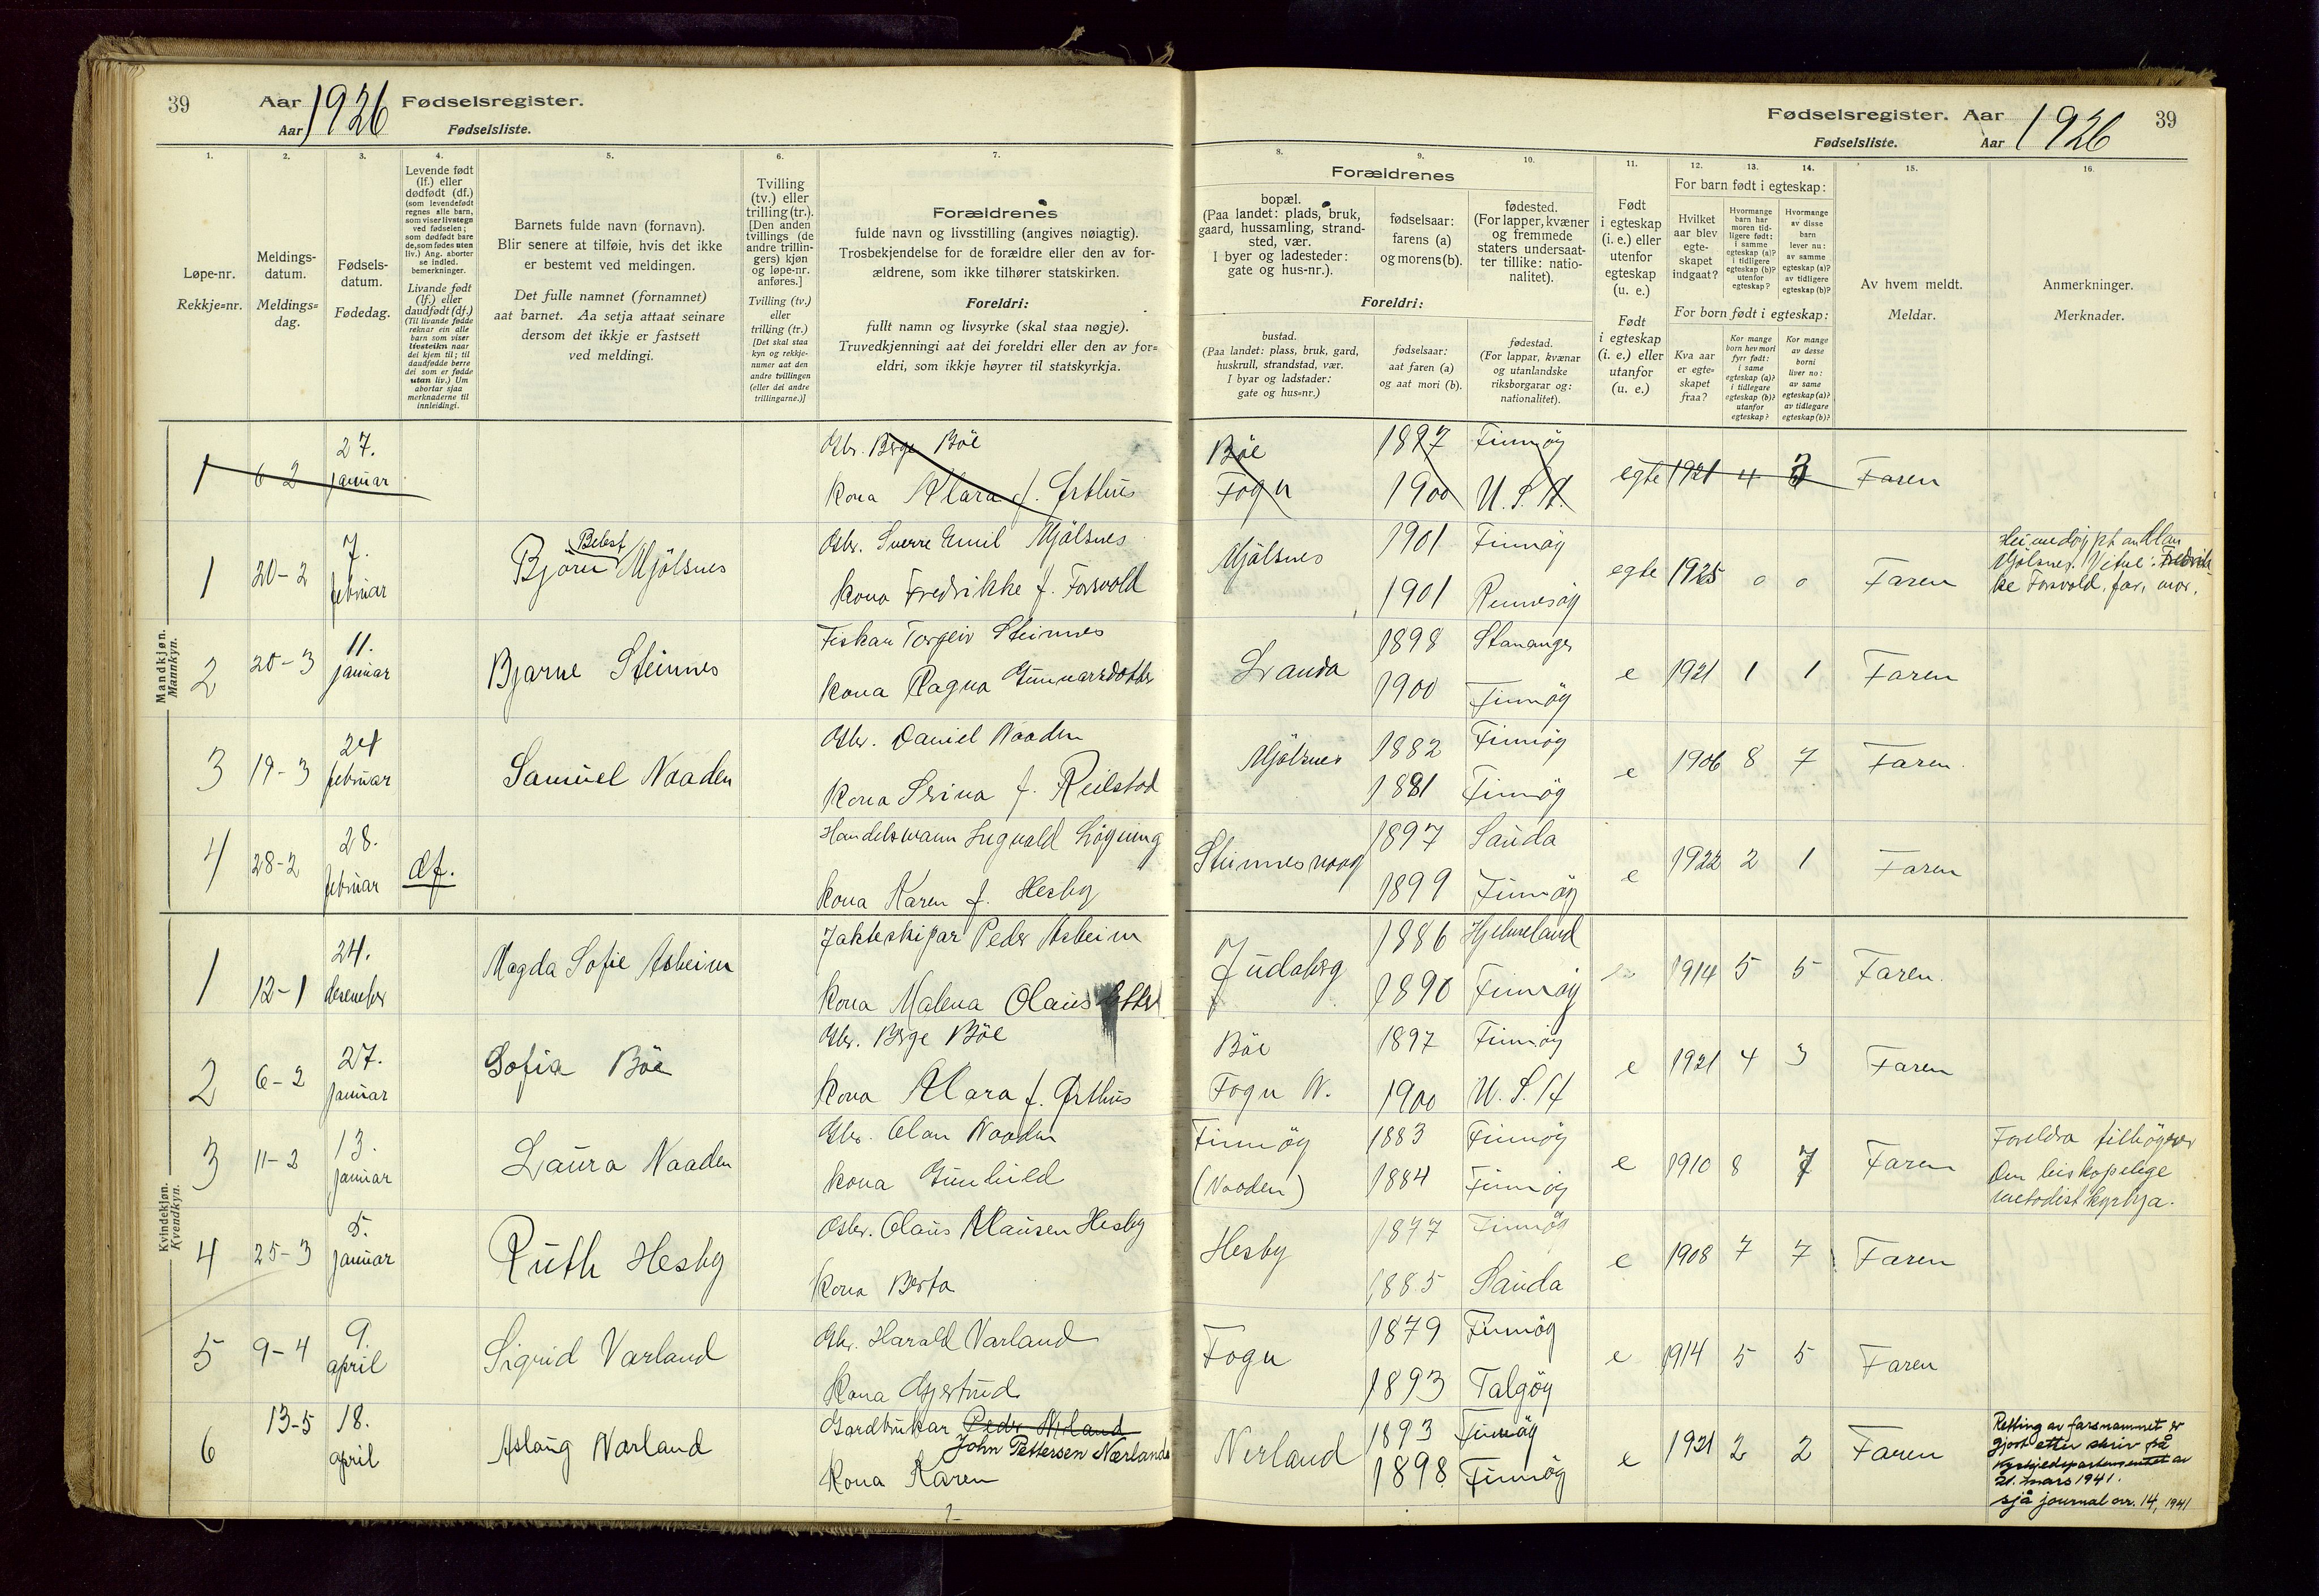 39 Aar 1926 Fødselsregister.
Aar Fødselsliste.
Fødselsregister. Aar 1926 39
Fødselsliste. Aar
1. 2. 3. 4. 5. 6. 7.
8. 9. 10. 11. 12. 13. 14. 15. 16.
Løpe-nr.
Rekkje=nr.
Meldings-
datum.
Meldings=
dag.
Fødsels-
datum.
Fødedag.
Levende født
(lf.) eller
dødfødt (df.)
(som levendefødt
regnes alle barn,
som viser livstegn
ved fødselen;
som dødfødt bare
de, som fødes uten
liv.) Ang. aborter
se indled.
bemerkninger.
Livande født
(lf.) eller
daudfødt (df.)
(Til livande fødde
reknar ein alle
barn som viser
livsteikn naar
dei kjem til; til
daudfødde berre
dei som er fødde
utan liv.) Um
abortar sjaa
merknaderne til
innleidingi.
Barnets fulde navn (fornavn).
Blir senere at tilføie, hvis det ikke
er bestemt ved meldingen.
Det fulle namnet (fornamnet)
aat barnet. Aa setja attaat seinare
dersom det ikkje er fastsett
ved meldingi.
Tvilling
(tv.) eller
trilling (tr.).
[Den anden
tvillings (de
andre trillin-
gers) kjøn
og løpe-nr.
anføres.]
Tvilling (tv.)
eller
trilling (tr.)
[Det skal staa
kyn og rekkje-
numer aat den
andre tvillingen
(eller dei andre
trillingarne.)]
Forældrenes
fulde navn og livsstilling (angives nøiagtig).
Trosbekjendelse for de forældre eller den av for-
ældrene, som ikke tilhører statskirken.
Foreldri:
fullt namn og livsyrke (skal staa nøgje).
Truvedkjenningi aat dei foreldri eller den av for=
eldri, som ikkje høyrer til statskyrkja.
Forældrenes
bopæl.
(Paa landet: plads, bruk,
gaard, hussamling, strand-
sted, vær.
I byer og ladesteder:
gate og hus-nr.).
fødselsaar:
farens (a)
og morens (b).
fødested.
(For lapper, kvæner
og fremmede
staters undersaat-
ter tillike: natio-
nalitet).
Foreldri:
bustad.
(Paa landet: plass, bruk, gard,
huskrull, strandstad, vær.
I byar og ladstader:
gate og hus=nr.)
fødselsaar:
aat faren (a)
og aat mori (b).
fødestad.
(For lappar, kvænar
og utanlandske
riksborgarar og:
nationalitet).
Født
i egteskap
(i. e.) eller
utenfor
egteskap
(u. e.)
Født
i egteskap
(i. e.) eller
utanfor
(u. e.)
For barn født i egteskap:
Hvilket
aar blev
egte-
skapet
indgaat?
Hvormange
barn har
moren tid-
ligere født:
i samme
egteskap (a)?
i tidligere
egteskap (b)?
utenfor
egteskap?
Hvormange
av disse
barn
lever nu:
av samme
egteskap (a)?
av tidligere
egteskap (b)?
For born født i egteskap:
Kva aar
er egte=
skapet
fraa?
Kor mange
born hev mori
fyrr født:
i same
egteskap (a)?
i tidlegare
egteskap (b)?
utanfor
egteskap?
Kor mange
av desse
borni
liver no:
av same
egteskap (a)?
av tidlegare
egteskap (b)?
Av hvem meldt.
Meldar.
Anmerkninger.
Merknader.
Mandkjøn.
Mannkyn.
1 6-2 27. januar
Gbr. Berge Böe
Kona Klara f. Östhus
Böe Fogn 1897 Finnöy 1900 U.S.A. egte 1921 4 3 Faren
1 20-2 7. februar Björn Behst Mjölsnes
Gbr. Sverre Emil Mjölsnes
Kona Fredrikke f. Forsvold
Mjölsnes 1901 Finnöy 1901 Rennesöy egte 1925 0 0 Faren
Heimedöypt av Alan
Mjölsnes. Vitne: Fredrik-
ke Forsvold, far, mor.
2 20-3 11. januar Bjarne Steinnes
Fiskar Torgeir Steinnes
Kona Ragna Gunnarsdotter
Landa 1898 Stavanger 1900 Finnöy e 1921 1 1 Faren
3 19-3 24 februar Samuel Naaden
Gbr. Daniel Naaden
Kona Serina f. Reilstad
Mjölsnes 1882 Finnöy 1881 Finnöy e 1906 8 7 Faren.
4 28-2 28. februar df.
Handelsmann Ingvald Lögning
Kona Karen f. Hesby
Steinnesvaag 1897 Sauda 1899 Finnöy e 1922 2 1 Faren
Kvindekjøn.
Kvendkyn.
1 12-1 24. desember Magda Sofie Asheim
Jakteskipar Peder Asheim
Kona Malena Olausdotter
Judaberg 1886 Hjelmeland 1890 Finnöy e 1914 5 5 Faren.
2 6-2 27. januar Sofia Böe
Gbr. Berge Böe
Kona Klara f. Östhus
Böe Fogn N. 1897 Finnöy 1900 U.S.A e 1921 4 3 Faren
3 11-2 13. januar Laura Naaden
Gbr. Olau Naaden
Kona Gunhild
Finnöy (Naaden) 1883 Finnöy 1884 Finnöy e 1910 8 7 Faren
Foreldra tilhöyrer
den biskopelege
metodistkyrkja.
4 25-3 5. januar Ruth Hesby
Gbr. Olaus Klausen Hesby
Kona Berta
Hesby 1877 Finnöy 1885 Sauda e 1908 7 7 Faren
5 9-4 9. april Sigrid Varland
Gbr. Harald Varland
Kona Gjertrud
Fogn 1879 Finnöy 1893 Talgöy e 1914 5 5 Faren
6 13-5 18. april Aslaug Nærland
Gardbrukar Peder Nerland
John Pettersen Nærland
Kona Karen
Nerland 1893 Finnöy 1898 Finnöy e 1921 2 2 Faren
Retting av farsnammet er
gjort etter skriv frå
Kyrkjedepartementet av
21. mars 1941.
sjå journal nr. 14, 1941